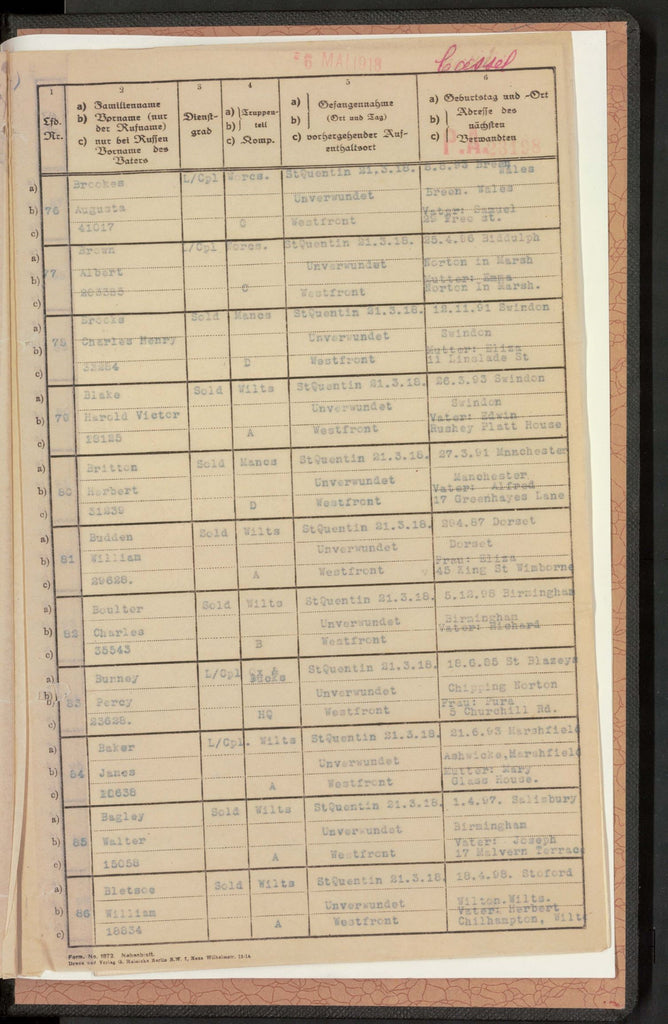 6 MAI 1918
Cassel
1 2 3 4 5 6
Lfd. Nr.
a) Familienname
b) Vorname (nur der Rufname)
c) nur bei Russen Vorname des Vaters
Dienst-grad
a) Truppen-
b) teil
c) Komp.
a) Gefangennahme
b) (Ort und Tag)
c) vorhergehender Auf-enthaltsort
a) Geburtstag und -Ort
b) Adresse des
c) nächsten Verwandten
a) Brookes L/Cpl Worcs. StQuentin 21.3.18. Wales
b) 76 Augusta Unverwundet Breen. Wales
Vater: Samuel
c) 41017 C Westfront 29 Free st.
a) Brown L/Cpl Worcs. StQuentin 21.3.18. 25.4.96 Biddulph
b) 77 Albert Unverwundet Norton in Marsh
Mutter: Emma
c) C Westfront Norton In Marsh.
a) Brooks Sold Mancs StQuentin 21.3.18. 12.11.91 Swindon
b) 78 Charles Henry Unverwundet Swindon
Mutter: Eliza
c) D Westfront 11 Linslade St
a) Blake Sold Wilts StQuentin 21.3.18. 26.3.93 Swindon
b) 79 Harold Victor Unverwundet Swindon
Vater: Edwin
c) 18125 A Westfront Rushey Platt House
a) Britton Sold Mancs StQuentin 21.3.18. 27.3.91 Manchester
b) 80 Herbert Unverwundet Manchester
Vater: Alfred
c) 31239 D Westfront 17 Greenhayes Lane
a) Budden Sold Wilts StQuentin 21.3.18. 294.87 Dorset
b) 81 William Unverwundet Dorset
Frau: Eliza
c) 29628. A Westfront 45 King St Wimborne
a) Boulter Sold Wilts StQuentin 21.3.18. 5.12.98 Birmingham
b) 82 Charles Unverwundet Birmingham
Vater: Richard
c) 35543 B Westfront
a) Burney L/Cpl Ox & Bucks StQuentin 21.3.18. 18.6.85 St Blazeys
b) 83 Percy Unverwundet Chipping Norton
Frau:
c) 23628. HQ Westfront 5 Churchill Rd.
a) Baker L/Cpl. Wilts StQuentin 21.3.18. 21.6.93 Marshfield
b) 84 James Unverwundet Ashwicke, Marshfield
Mutter: Mary
c) A Westfront Glass House.
a) Bagley Sold Wilts StQuentin 21.3.18. 1.4.97. Salisbury
b) 85 Walter Unverwundet Birmingham
Vater: Joseph
c) 15058 A Westfront 17 Malvern Terrace
a) Bletsoe Sold Wilts StQuentin 21.3.18 18.4.98. Stoford
b) 86 William Unverwundet Wilton. Wilts.
Vater: Herbert
c) 18834 A Westfront Chilhampton, Wilts
Form. No. 1872. Nebenbratt.
Druck und Verlag G. Heinicke Berlin S.W. 1, Neue Wilhelmstr. 13-14